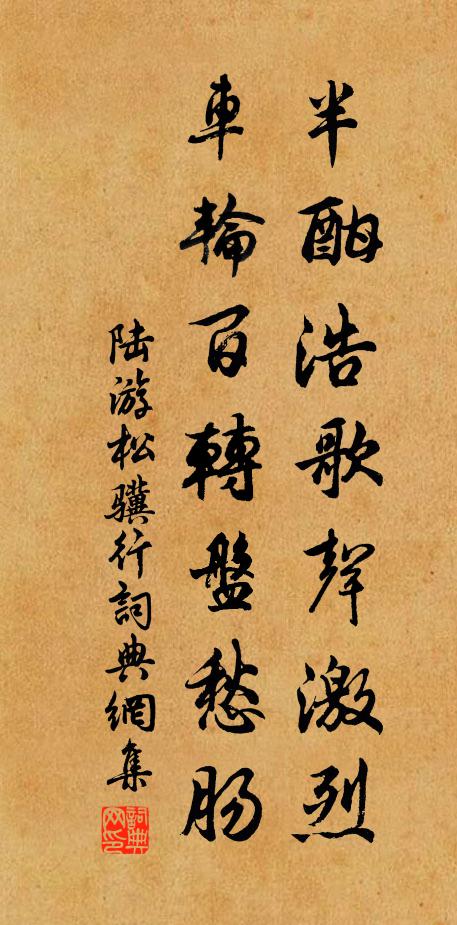 半酣浩歌聲激烈
車輪百轉盤愁腸
陆游松骥行詞典網集
詞典網印